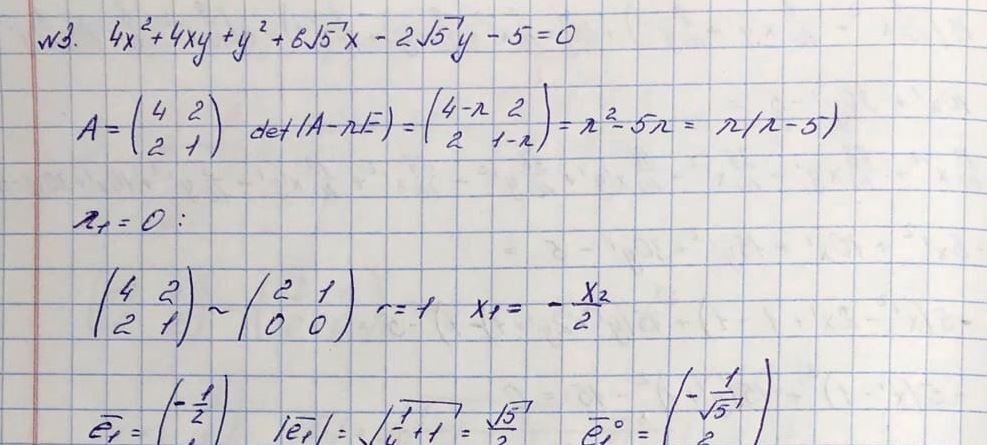 №3. 4x² + 4xy + y² + 6√5 x - 2√5 y - 5 = 0
A = (4 2; 2 1) det(A - λE) = (4-λ 2; 2 1-λ) = λ² - 5λ = λ(λ - 5)
λ₁ = 0 :
(4 2; 2 1) ~ (2 1; 0 0) r = 1 x₁ = - x₂/2
e̅₁ = (-1/2; 1) |e̅₁| = √(1/4 + 1) = √5/2 e̅₁° = (-1/√5; 2